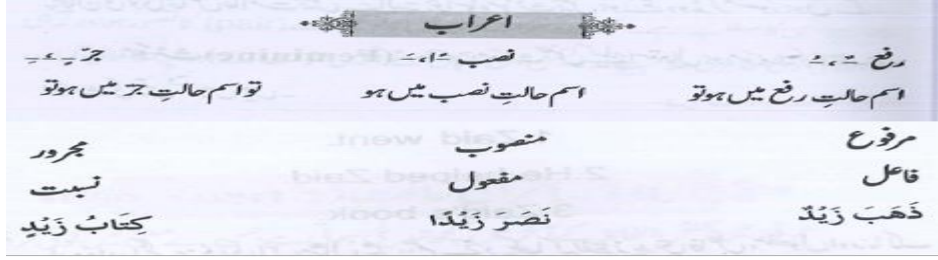 اعراب
رفع ـٌ ، ـُ نصب ـًا ، ـَ جرّ ـٍ ، ـِ
اسم حالتِ رفع میں ہوتو اسم حالتِ نصب میں ہو تو اسم حالتِ جرّ میں ہوتو
مرفوع منصوب مجرور
فاعل مفعول نسبت
ذَهَبَ زَيْدٌ نَصَرَ زَيْدًا كِتَابُ زَيْدٍ